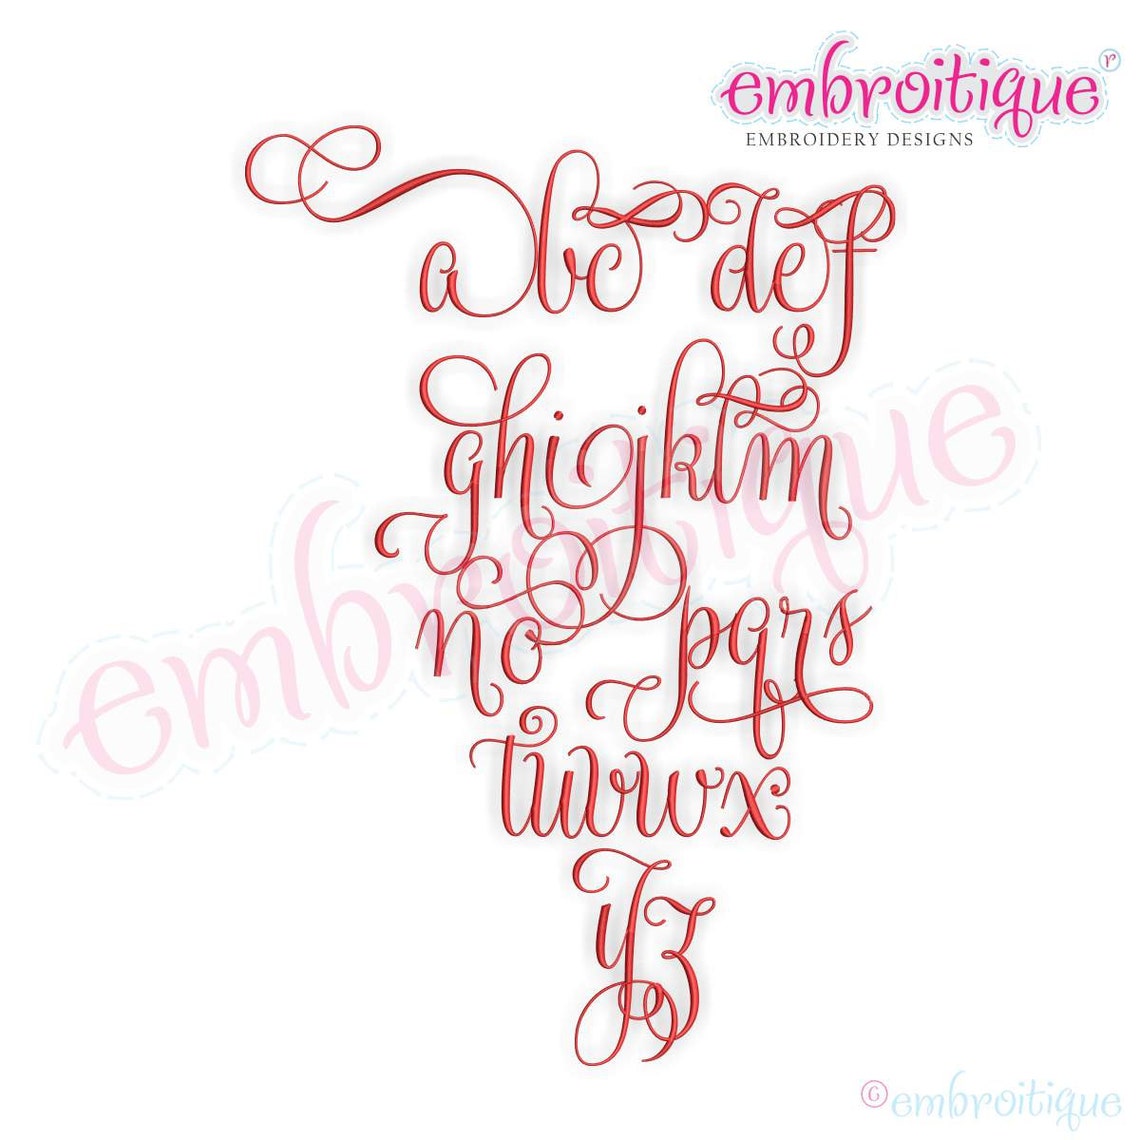 embroitique r
EMBROIDERY DESIGNS
abcdef
ghijklm
nopqrs
tuvwx
yz
embroitique
© embroitique